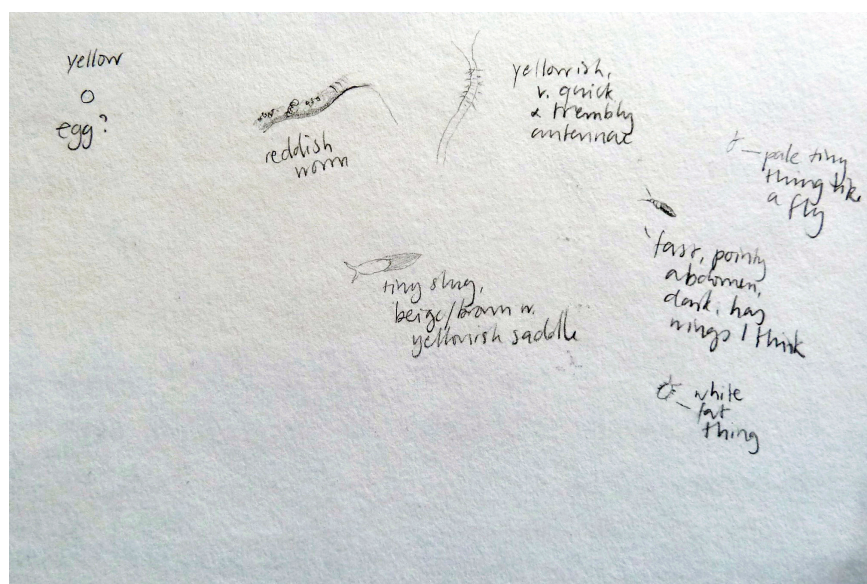 yellow
egg?
reddish
worm
yellowish,
v. quick
& trembly
antennae
pale tiny
thing like
a fly
tiny slug,
beige/brown w.
yellowish saddle
fast, pointy
abdomen,
dark, has
wings I think
white
fat
thing